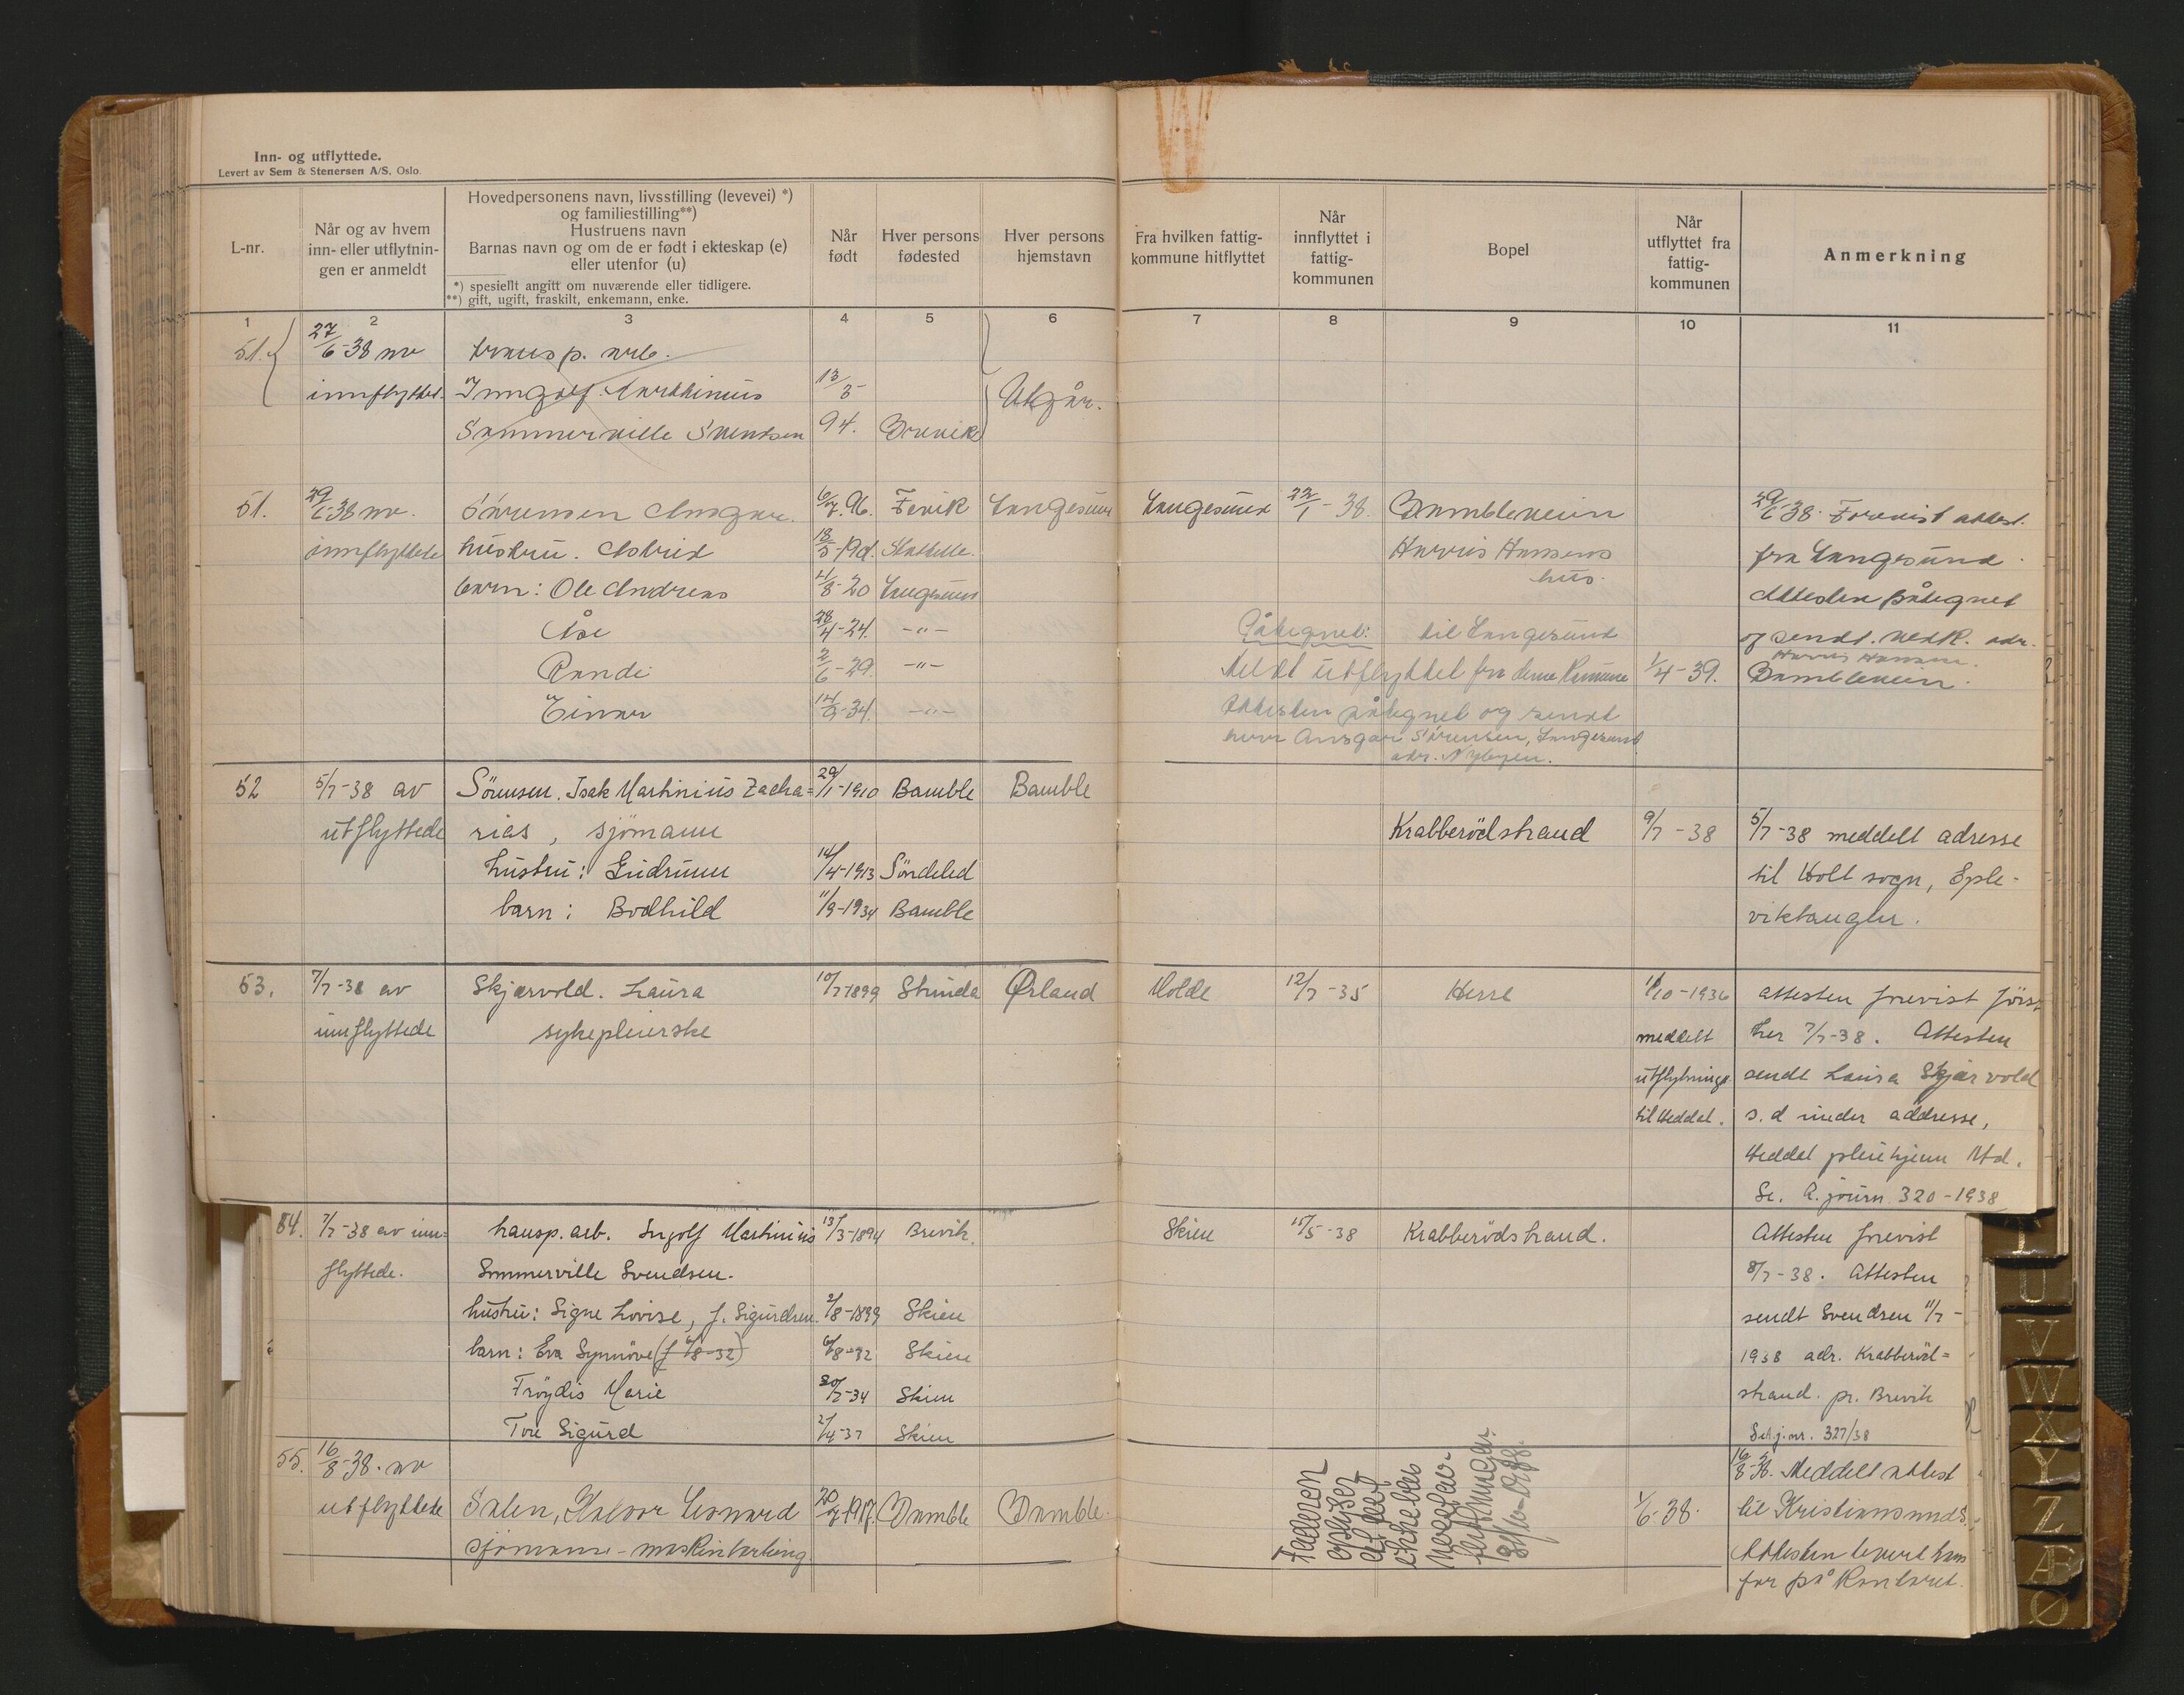 Inn- og utflyttede.
Levert av Sem & Stenersen A/S, Oslo.
L-nr.
Når og av hvem
inn- eller utflytnin-
gen er anmeldt
Hovedpersonens navn, livsstilling (levevei) *)
og familiestilling**)
Hustruens navn
Barnas navn og om de er født i ekteskap (e)
eller utenfor (u)
*) spesiellt angitt om nuværende eller tidligere.
**) gift, ugift, fraskilt, enkemann, enke.
Når
født
Hver persons
fødested
Hver persons
hjemstavn
Fra hvilken fattig-
kommune hitflyttet
Når
innflyttet i
fattig-
kommunen
Bopel
Når
utflyttet fra
fattig-
kommunen
Anmerkning
1 2 3 4 5 6 7 8 9 10 11
51. 27/6-38 av transp. arb.
innflyttet. Inngolf Marthinius 13/3- Utgår.
Sammerville Svendsen 94. Brevik
51. 29/6-38 av. Sørensen Ansgar. 6/7.96. Fevik Langesund Langesund 22/1-38. Bambleveien 29/6-38. Forevist attest.
innflyttede hustru. Astrid Stathelle. Harris Hansens fra Langesund.
hus.
barn: Ole Andreas 21/8-20 Langesund Attesten påtegnet
Åse 28/4-24. -"- Påtegnet: til Langesund og sendt. vedk. adr.
Harris Hansen.
Randi 2/6-29. -"- Meldt utflyttet fra denne Komune 1/4-39. Bambleveien.
Einar 14/9-34. -"- Attesten påtegnet og sendt
herr Ansgar Sörensen, Langesund
adr. Nybyen.
52 5/7-38 av Sörensen. Isak Martinius Zacha= 29/1-1910 Bamble Bamble
utflyttede rias, sjömann Krabberödstrand 9/7-38 5/7-38 meddelt adresse
hustru: Gudrunn 14/4-1913 Söndeled til Holt sogn, Eple-
barn: Bodhild 11/9-1934 Bamble viktangen.
53. 7/7-38 av Skjærvold. Laura 10/7-1899 Strinda Ørland Molde 12/7-35 Herre 11/10-1936 attesten frevist först
innflyttede sykepleierske meddelt her 7/7-38. Attesten
utflytnings sendt Laura Skjærvold
til Heddal. s.d under addresse,
Heddal pleiehjem Ntd.
Se. A. journ 320-1938
54. 7/7-38 av inn= transp. arb. Ingolf Martinius 13/3-1894 Brevik. Skien 15/5-38 Krabberödstrand. Attesten frevist
flyttede. Sommerville Svendsen. 8/7-38. Attesten
hustru: Signe Lovise, f. Sigurdsen. 2/8-1899 Skien sendt Svendsen 11/7-
barn: Eva Synnöve (f 6/8-32) 6/8-32 Skien 1938 adr. Krabberöd=
Fröydis Marie 20/7-34 Skien strand. pr. Brevik
Tore Sigurd 2/4-37 Skien Se A j. nr. 327/38
55. 16/8-38. av 16/8-38. Meddelt attest
utflyttede Salen, Halvor Leonard 20/7-1917. Bamble Bamble. 1/6-38. til Kristiansund S.
sjömann - maskinlærling Attesten levert hans
far på Kontoret.
Faderen
oplyser